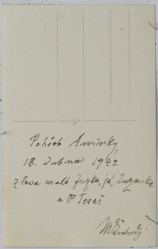 Pohřeb Aninky
18. dubna 1942
zleva malá Zuzka, já, Zuzanka
a Vl Tesař